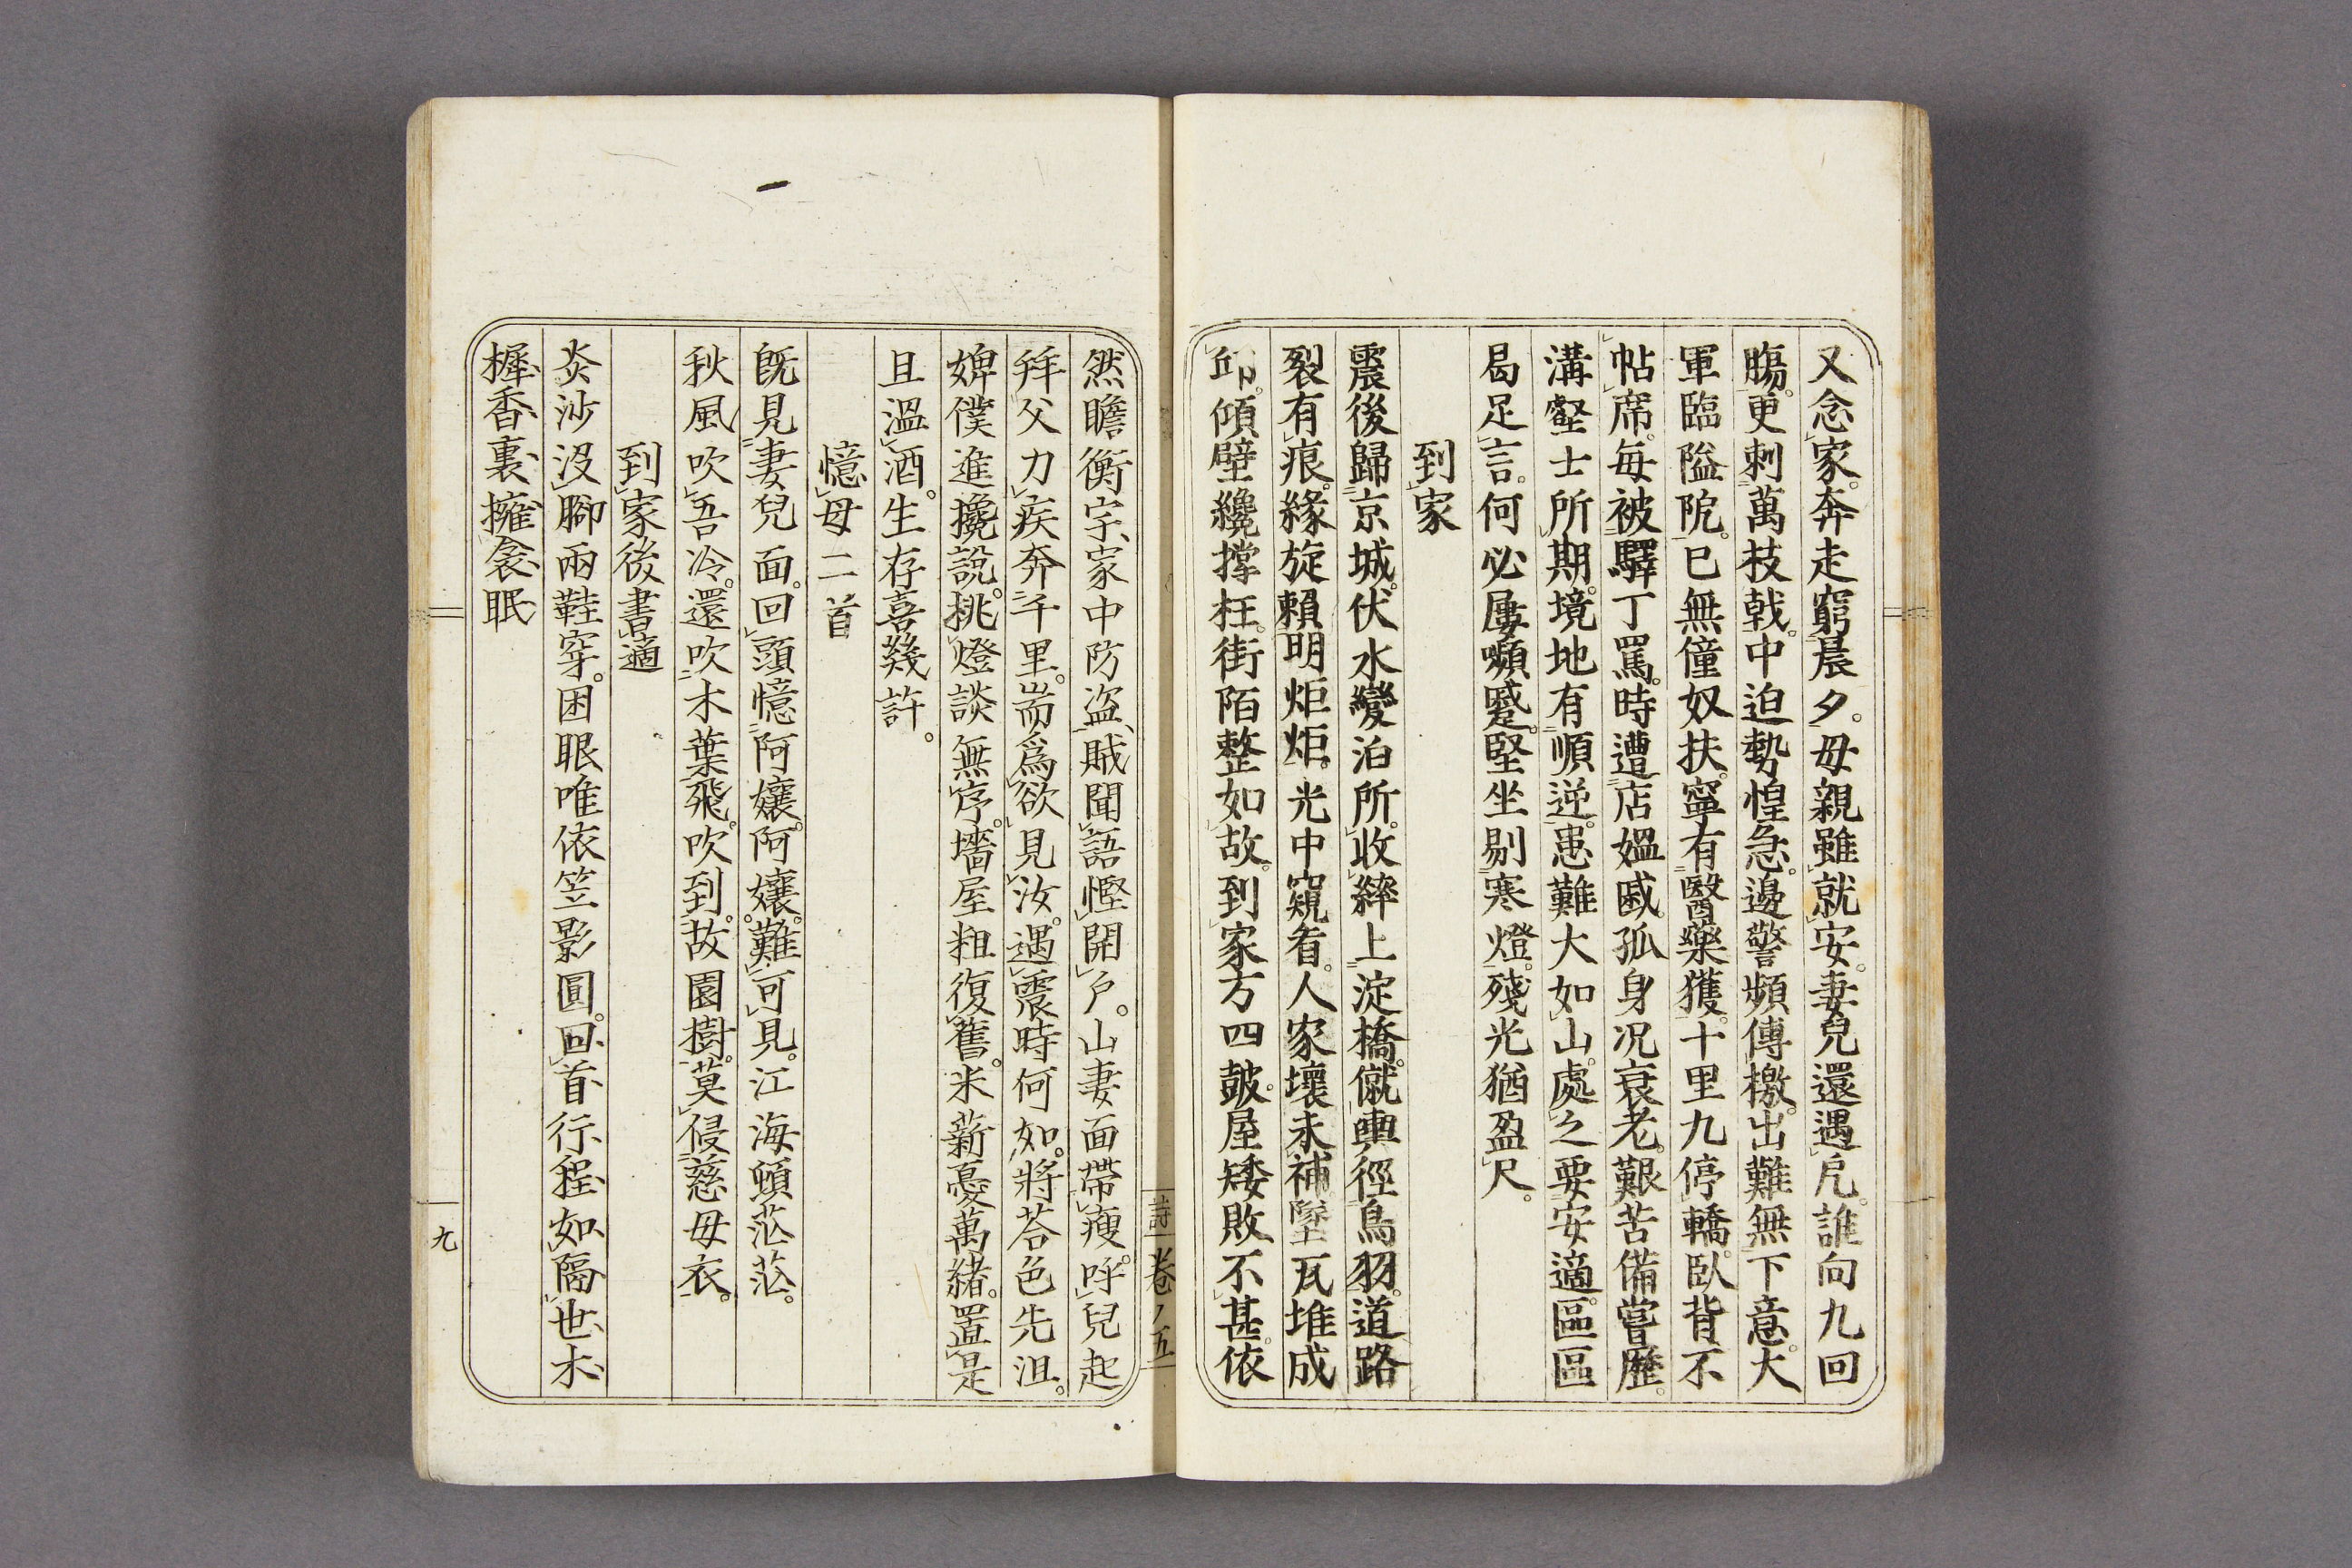 又念家。奔走窮晨夕。母親雖就安。妻兒還遇厄。誰向九回
腸。更刺萬枝戟。中迫勢惶急。邊警頻傳檄。出難無下意。大
軍臨隘阨。已無僮奴扶。寧有醫藥獲。十里九停轎。臥背不
帖席。每被驛丁罵。時遭店媼慼。孤身况衰老。艱苦備嘗歷。
溝壑士所期。境地有順逆。患難大如山。處之要安適。區區
曷足言。何必屢嚬蹙。堅坐剔寒燈。殘光猶盈尺。
到家
震後歸京城。伏水變泊所。收繂上淀橋。僦輿徑鳥羽。道路
裂有痕。緣旋賴明炬。炬光中窺看。人家壞未補。墜瓦堆成
邱。傾壁纔撑枉。街陌整如故。到家方四皷。屋矮敗不甚。依
然瞻衡宇、家中防盗賊聞語慳開戶。山妻面帶瘦。呼兒起
拜父力疾奔千里。耑爲欲見汝。遇震時何如。將荅色先沮。
婢僕進攙說。挑燈談無序。墻屋粗復舊。米薪憂萬緒。置是
且溫酒。生存喜幾許。
憶母二首
既見妻兒面。回頭憶阿孃。阿孃難可見。江海頓茫茫。
秋風吹吾冷。還吹木葉飛。吹到故園樹。莫侵慈母衣。
到家後書適
炎沙沒腳兩鞋穿。困眼唯依笠影圓。回首行程如隔世木
樨香裏擁衾眠
詩
卷ノ五
九